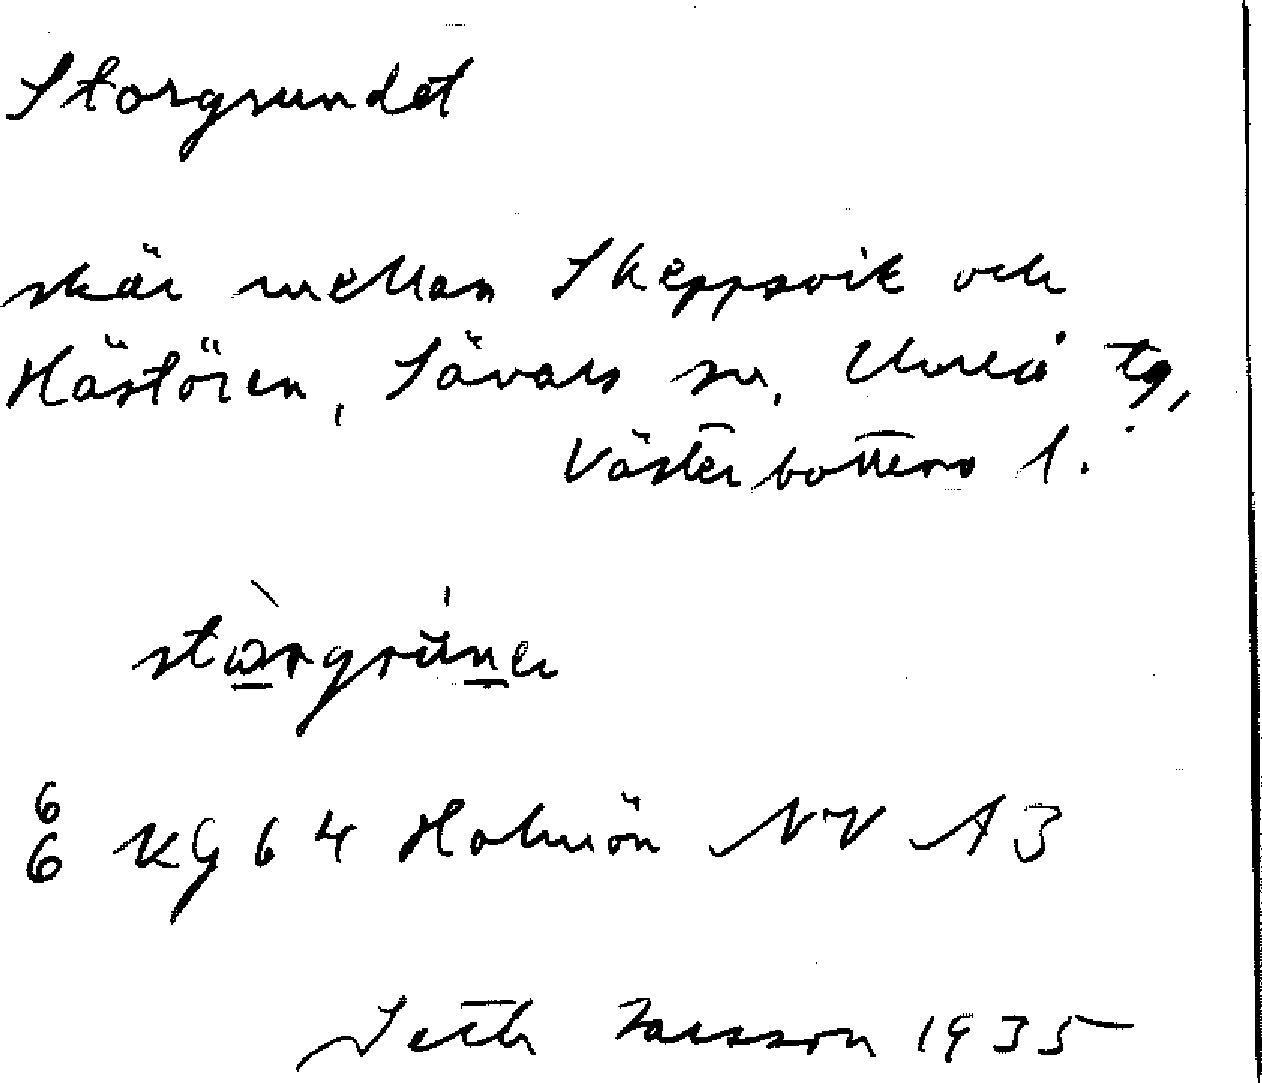 Storgrundet
skär mellan Skeppsvik och
Hästören, Sävars sn, Umeå tg,
Västerbottens l.
6
6 KG 64 Holmön NV A3
Seth Larsson 1935